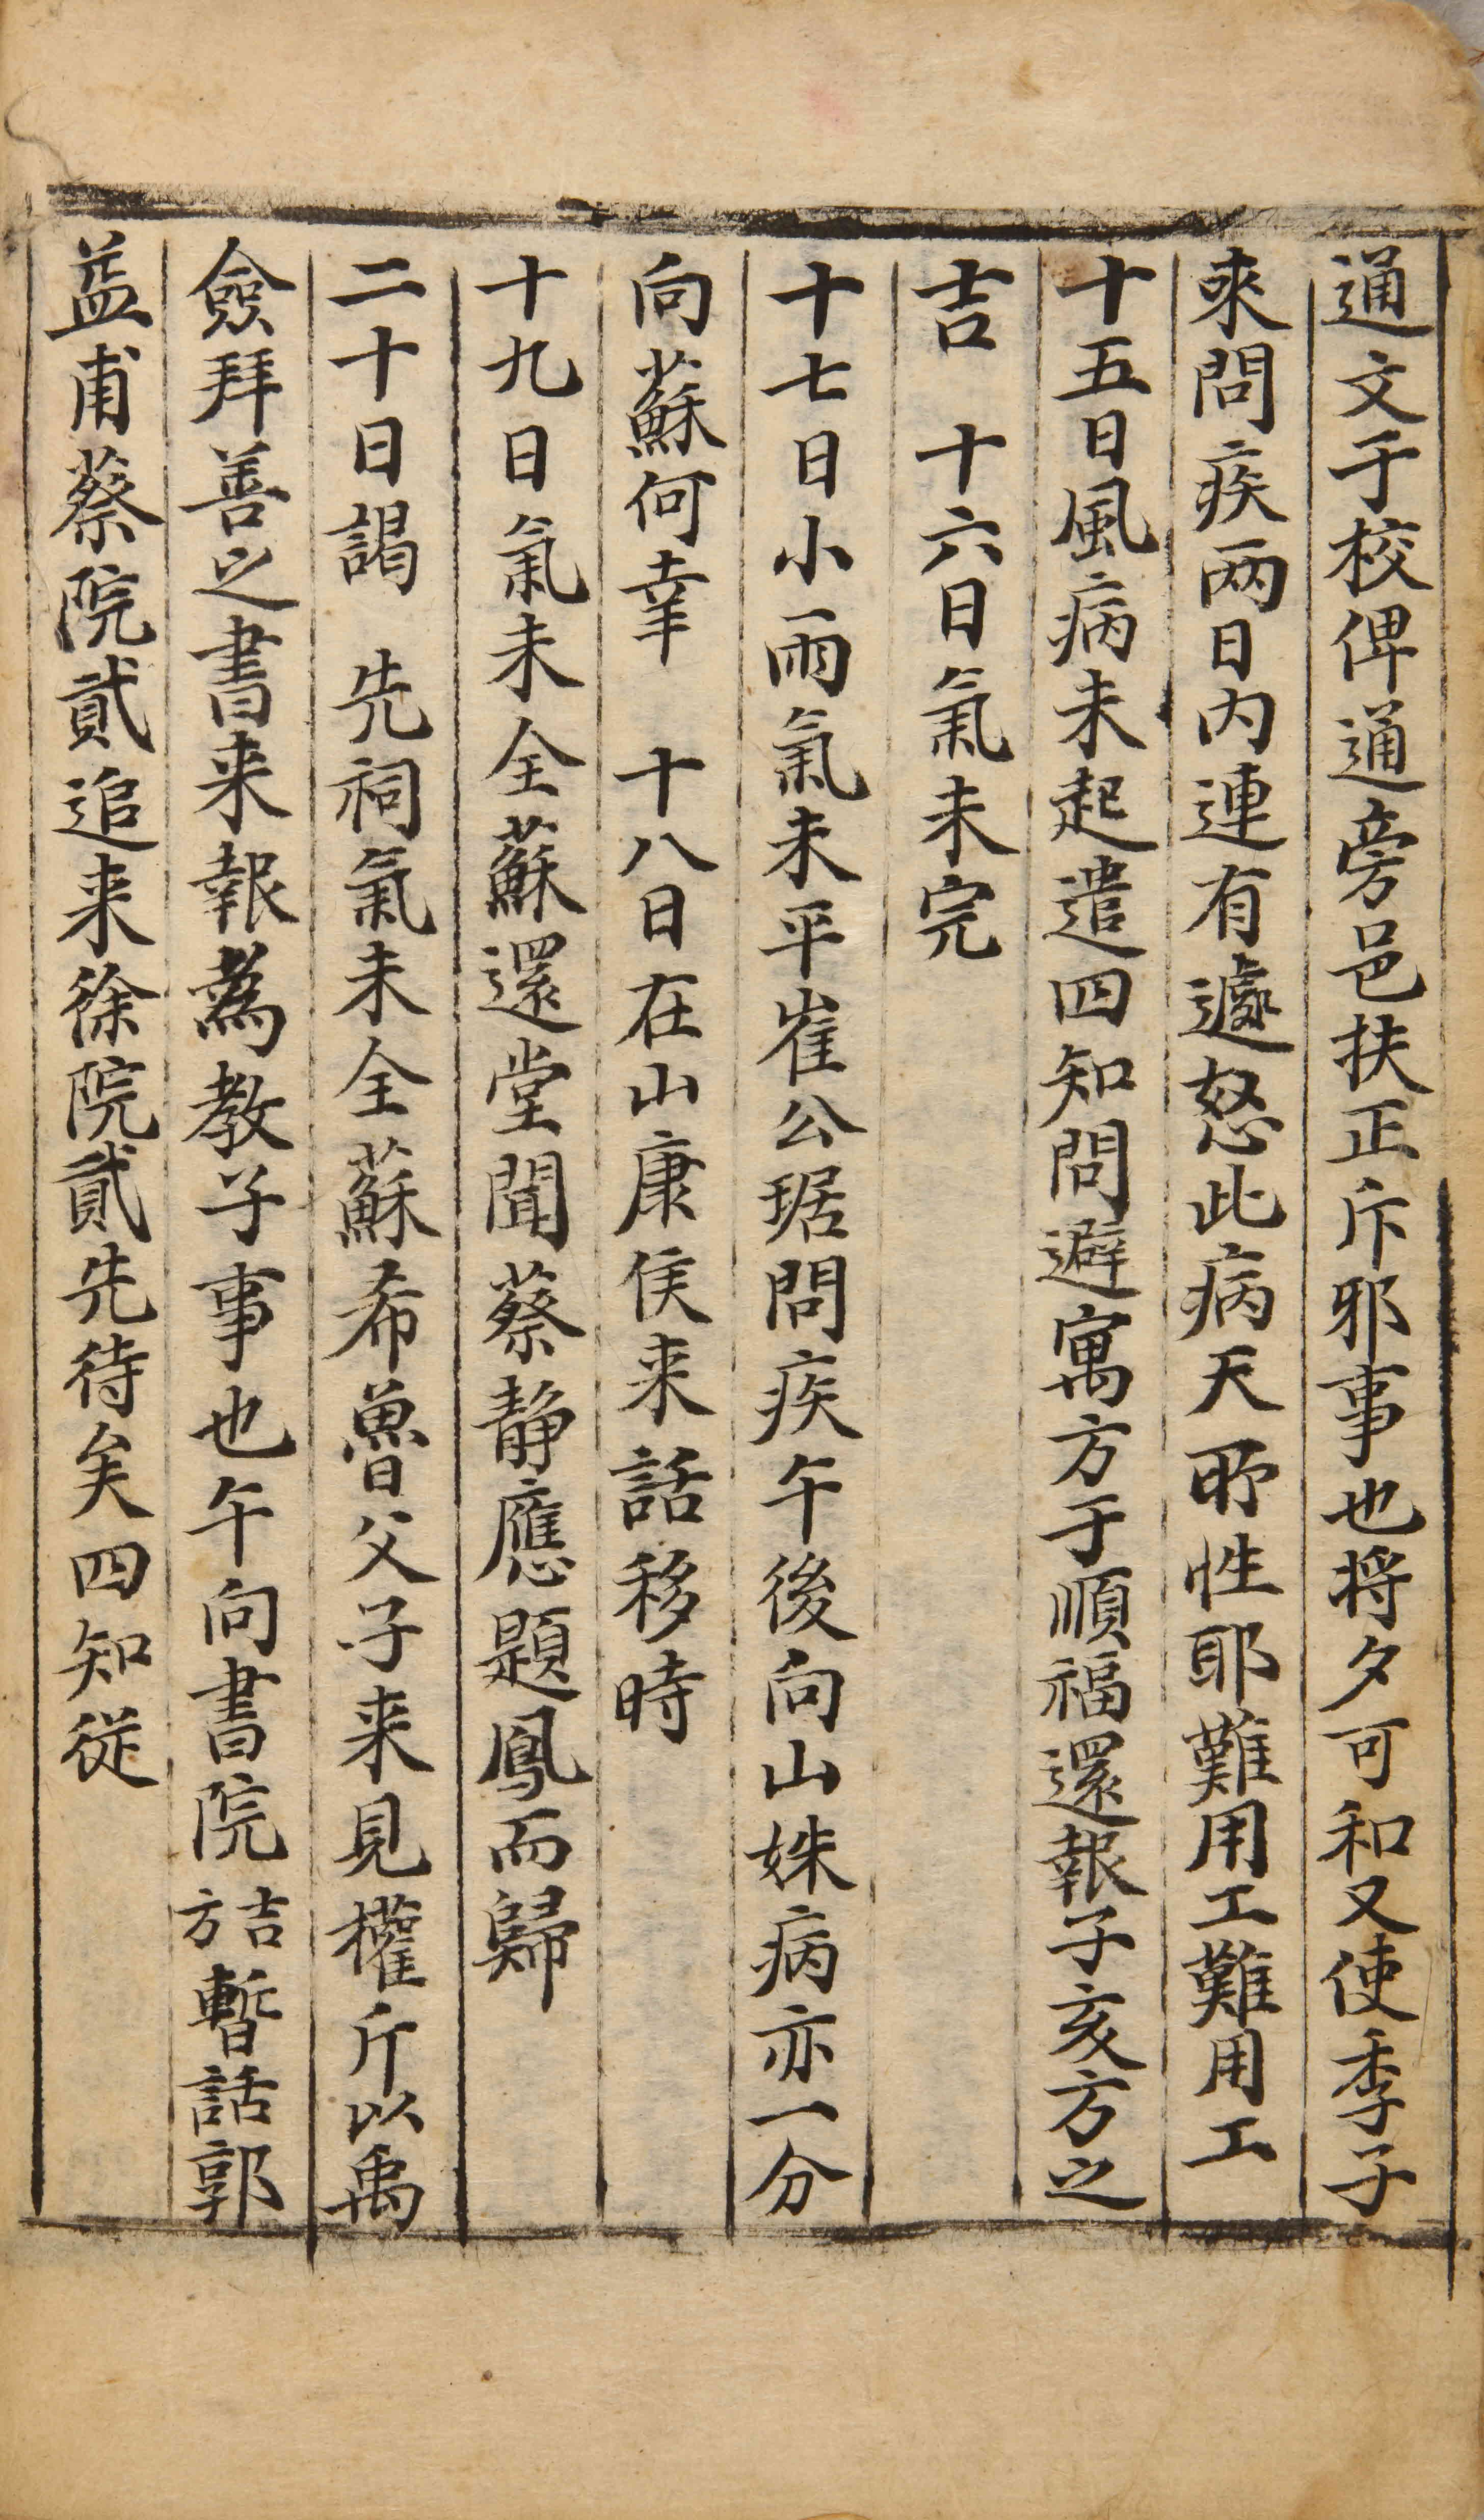 通文于校俾通旁邑扶正斥邪事也將夕可和又使季子
來問疾兩日內連有遽怒此病天所性耶難用工難用工
十五日風病未起遣四知問避寓方于順福還報子亥方之
吉　十六日氣未完
十七日小雨氣未平崔公琚問疾午後向山姝病亦一分
向蘇何幸　十八日在山康侯来話移時
十九日氣未全蘇還堂聞蔡靜應題鳳而歸
二十日謁　先祠氣未全蘇希魯父子来見權斤以禹
僉拜善之書来報為教子事也午向書院吉方暫話郭
益甫蔡院貳追来徐院貳先待矣四知從